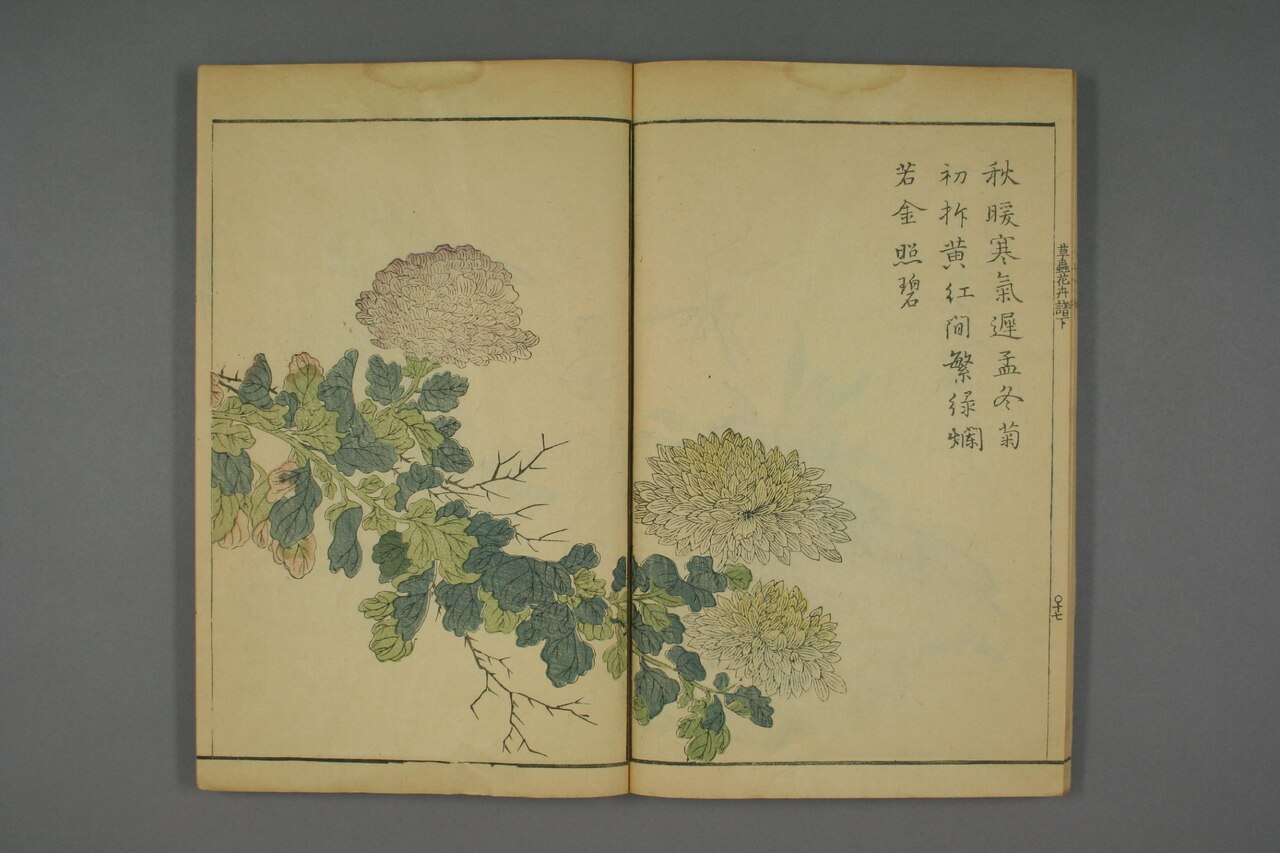 秋暖寒氣遲孟冬菊
初拆黃紅間繁綠爛
若金照碧
草蟲花卉譜下
〇十七